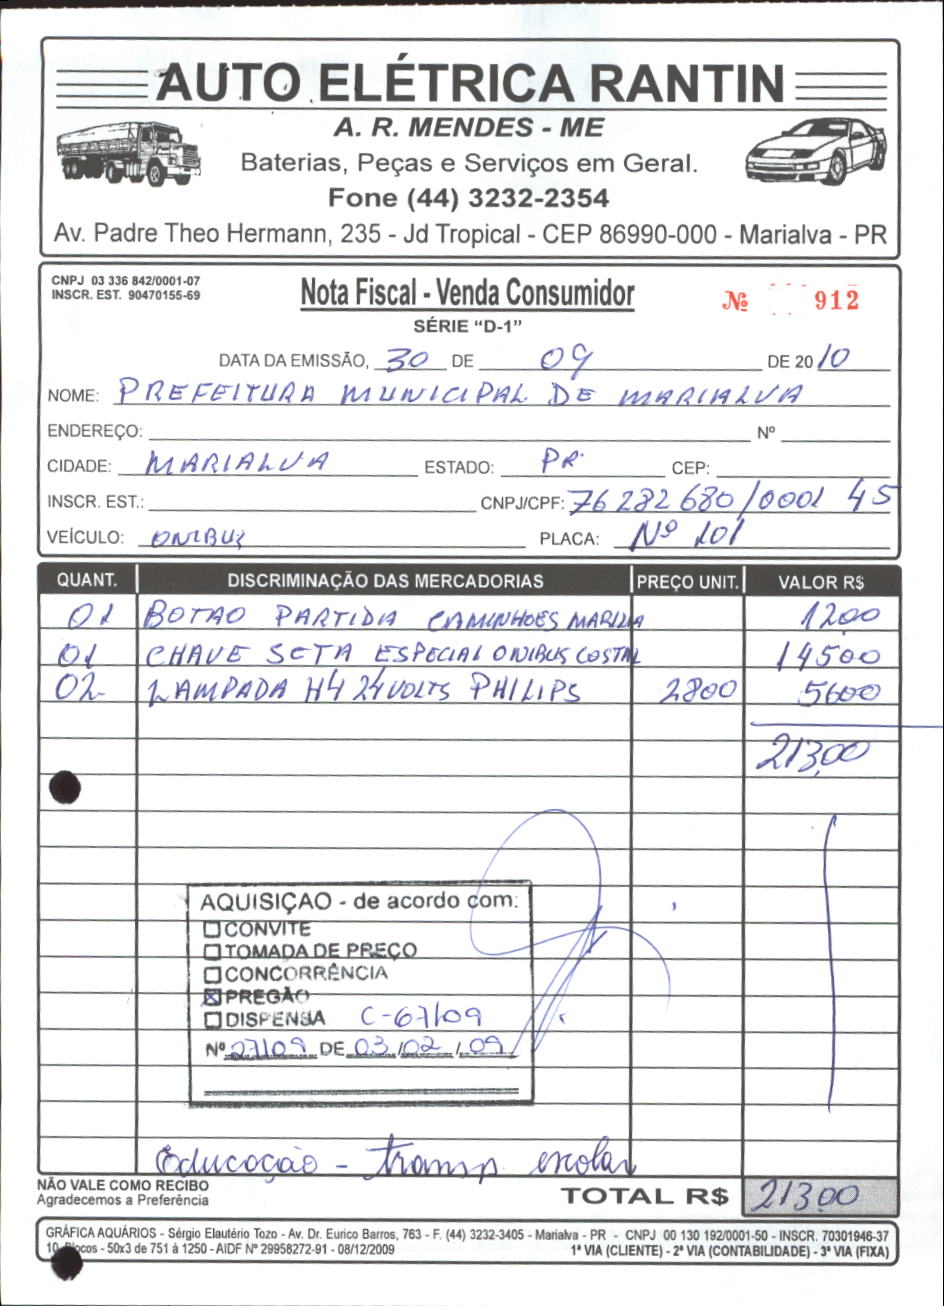 AUTO ELÉTRICA RANTIN
A. R. MENDES - ME
Baterias, Peças e Serviços em Geral.
Fone (44) 3232-2354
Av. Padre Theo Hermann, 235 - Jd Tropical - CEP 86990-000 - Marialva - PR
CNPJ 03 336 842/0001-07
INSCR. EST. 90470155-69
Nota Fiscal - Venda Consumidor
Nº 912
SÉRIE "D-1"
DATA DA EMISSÃO, 30 DE 09 DE 2010
NOME: PREFEITURA MUNICIPAL DE MARIALVA
ENDEREÇO: Nº
CIDADE: MARIALVA ESTADO: PR. CEP:
INSCR. EST.: CNPJ/CPF: 76 282 680/0001 45
VEÍCULO: ONIBUS PLACA: Nº 101
QUANT. DISCRIMINAÇÃO DAS MERCADORIAS PREÇO UNIT. VALOR R$
01 BOTAO PARTIDA CAMINHOES 1200
01 CHAVE SETA ESPECIAL ONIBUS COSTAL 14500
02 LAMPADA H4 24 VOLTS PHILIPS 2800 5600
213,00
AQUISIÇAO - de acordo com:
CONVITE
TOMADA DE PREÇO
CONCORRÊNCIA
PREGÃO
DISPENSA C-67/09
Nº 27/09 DE 03/02/09
Educação - transp. escolar
NÃO VALE COMO RECIBO
Agradecemos a Preferência
TOTAL R$ 213,00
GRÁFICA AQUÁRIOS - Sérgio Elautério Tozo - Av. Dr. Eurico Barros, 763 - F. (44) 3232-3405 - Marialva - PR - CNPJ 00 130 192/0001-50 - INSCR. 70301946-37
10 Blocos - 50x3 de 751 à 1250 - AIDF Nº 29958272-91 - 08/12/2009 1ª VIA (CLIENTE) - 2ª VIA (CONTABILIDADE) - 3ª VIA (FIXA)